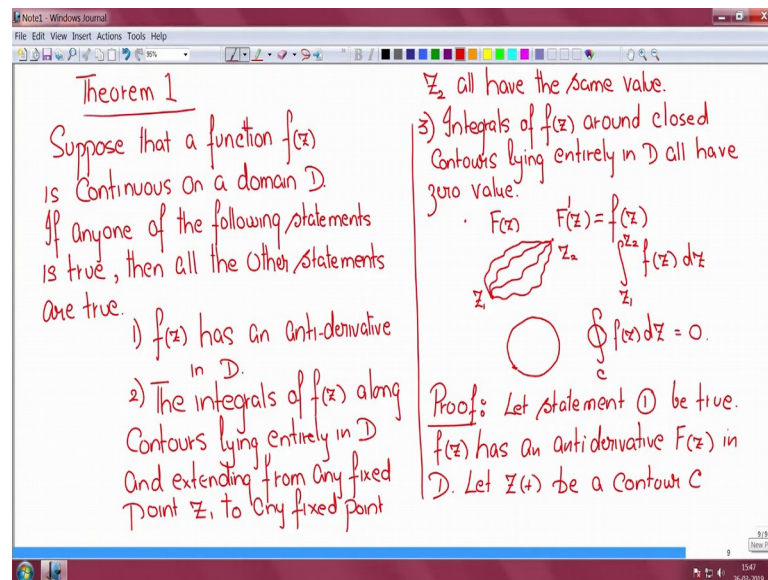 Note1 - Windows Journal
File Edit View Insert Actions Tools Help
96%
B I
Theorem 1
Suppose that a function f(z)
is Continuous on a domain D.
If anyone of the following statements
is true, then all the other statements
are true.
1) f(z) has an anti-derivative
in D.
2) The integrals of f(z) along
Contours lying entirely in D
and extending from any fixed
point z₁ to any fixed point
z₂ all have the same value.
3) Integrals of f(z) around closed
Contours lying entirely in D all have
zero value.
F(z) F'(z) = f(z)
z₁ z₂ ∫_{z₁}^{z₂} f(z) dz
∮_c f(z) dz = 0.
Proof: Let statement ① be true.
f(z) has an antiderivative F(z) in
D. Let z(t) be a contour C
9/9
New P
9
15:47
26-03-2019